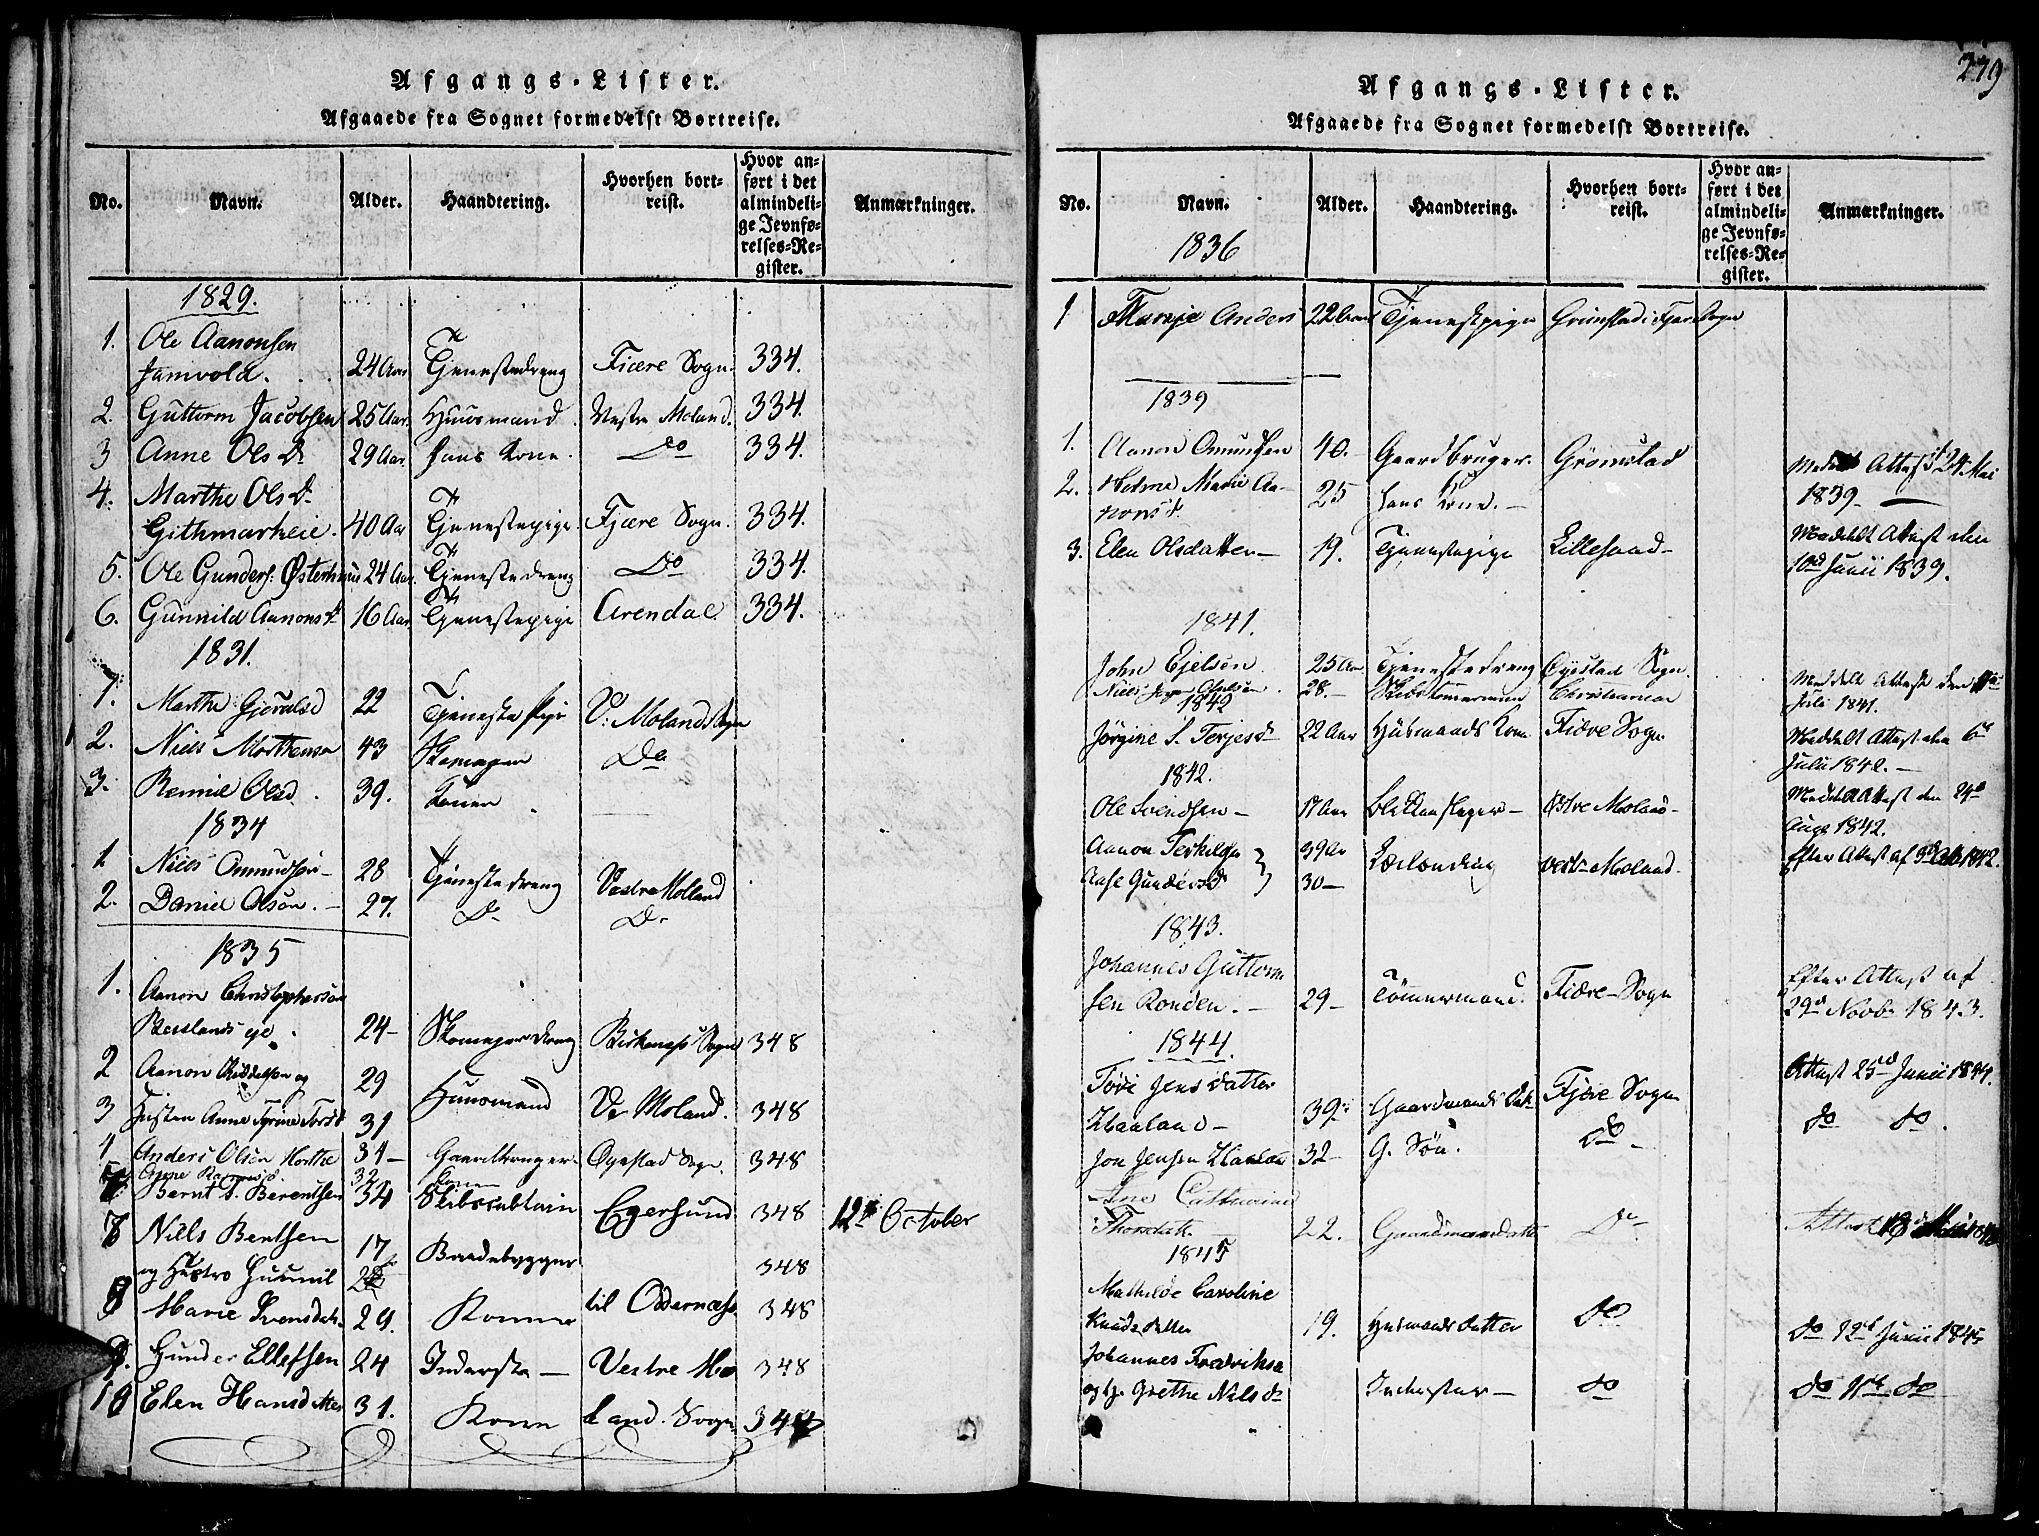 Afgangs-Lister.
Afgaaede fra Sognet formedelst Bortreise.
No. Navn. Alder. Haandtering. Hvorhen bortreist. Hvor anført i det almindelige Jevnførelses-Register. Anmærkninger.
1829.
1. Ole Aanonsen
Jamvold. 24 Aar Tjenestedreng Fjære Sogn. 334.
2. Guttorm Jacobsen 25 Aar. Huusmand. Vestre Moland. 334.
3 Anne Olsdr 29 Aar. hans Kone. Do 334.
4. Marthe Olsdr
Githmarkeie. 40 Aar Tjenestepige. Fjære Sogn. 334.
5. Ole Gunders: Østerhuus 24 Aar. Tjenestedreng Do 334.
6. Gunnild Aanonsdr 16 Aar. Tjenestepige Arendal 334.
1831.
1. Marthe Gjerulsd 22 Tjeneste Pige V: Molands Sogn
2. Niels Morthensen 43 Skomager Do
3. Olsd. 39. Konen
1834
1 Niels Ommundsen 28 Tjenestedreng Vestre Molland
2. Daniel Olsøn. 27. Do Do
1835
1. Aanon Christophersøn
24 Skomagerdreng Birkenæs Sogn 348
2 Aanon og 29 Huusmand Ve Moland. 348
3 Anne 31
4 Anders Olsen 31 Gaardbruger Øyestad Sogn. 348
32 Kone
Bernt S. Berentsen 34 Skibscaptain Egersund 348 12te October
Niels Bentsen 17 Baadebygger
og Hustro Gunnil 348
Marie Svensdatr 29. Konen til Oddernæs 348
9. Gunder Ellefsen 24 Inderste Vestre Mo 348
10 Elen Hansdatter 31. Kone land. Sogn 348
279
Afgangs-Lister.
Afgaaede fra Sognet formedelst Bortreise.
No. Navn. Alder. Haandtering. Hvorhen bortreist. Hvor anført i det almindelige Jevnførelses-Register. Anmærkninger.
1836
1 Anders 22 Aar Tjenestpige Grimstad i Fjære Sogn
1839
1. Aanon Omundsen 40. Gaardbruger. Grømstad Attest 24 Mai
2. Marie Aa- 25 hans Kone. 1839
nonsd.
3. Elen Olsdatter 19. Tjenestepige Lillesand Meddelt Attest den
10d Junii 1839.
1841.
John Ejelsen 25 Aar Tjenestedreng Øyestad Sogn. Meddelt Attest den
Niels 28. Skibstømmermand Christiansand Juli 1841.
1842
Jørgine S. Terjesdr 22 Aar Huusmands Kone Fiære Sogn Meddelt Attest den 6d
Julii 1842.
1842.
Ole Svendsen 17 Aar Blikkenslager Østre Moland Meddelt Attest den 24d
Augs 1842.
Aanon Terkilsen 39 Aar Vestre Moland Efter Attest af 1842.
Aase Gundersd 30
1843.
Johannes Guttorm
sen Ronden. 29 Tømmermand. Fiære Sogn Efter Attest af
29d Novbr 1843.
1844.
Tøre Jensdatter Attest 25d Junii 1844.
Haaland 39. Gaardmands Dat. Fjære Sogn do do.
Jon Jensen Haaland 32 G. Søn. do
Ane Cathrine
Thorsdatr 22. Gaardmandsdatter Do Attest
1845
Mathilde Caroline
Knudsdatter 19. Husmands datter do do 12d Junii 1845
Johannes Fredriksen
og h. Grethe Nilsdr Inderster do do 11te do